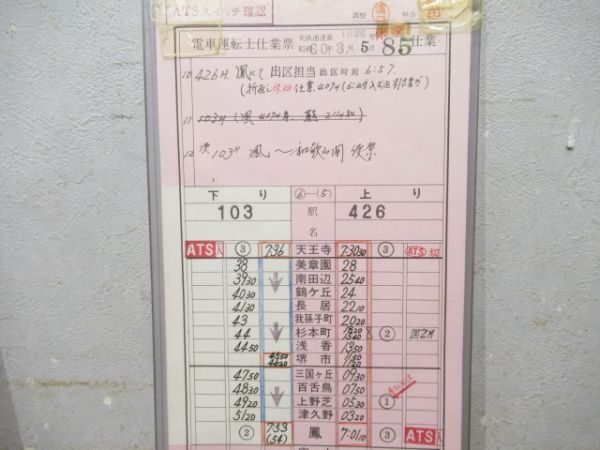 ATSスイッチ確認 調整 照合
天鉄達運第1025号
電車運転士仕業票 昭和60年3月5日 85仕業
10 426H 鳳にて 出区担当 出区時刻 6:57
11 103H
12 次 103H 鳳〜和歌山間 便乗
下り ⑥—(5) 上り
103 駅名 426
ATS入 ③ 7:36 天王寺 7:30 30 ③ ATS切
38 美章園 28
39 30 南田辺 25 40
40 30 鶴ケ丘 24
41 30 長居 22 10
43 我孫子町 20 20
44 杉本町 18 20 15 40 ②
44 50 浅香 13 50
堺市
47 50 三国ヶ丘 09 30
48 30 百舌鳥 07 50
49 20 上野芝 05 30 ①
51 20 津久野 03 20
② 7:53 (54) 鳳 7:01 10 ③ ATS入